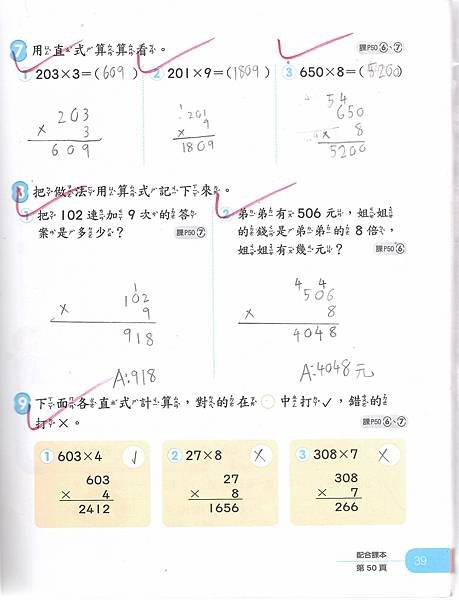 7 用直式算算看。 課P50 6、7
1 203×3=(609) 2 201×9=(1809) 3 650×8=(5200)
203
× 3
609
1
201
× 9
1809
54
650
× 8
5200
8 把做法用算式記下來。
1 把 102 連加 9 次的答
案是多少? 課P50 7
1
102
× 9
918
A:918
2 弟弟有 506 元,姐姐
的錢是弟弟的 8 倍,
姐姐有幾元? 課P50 6
4 4
506
× 8
4048
A:4048元
9 下面各直式計算,對的在○中打✓,錯的
打×。 課P50 6、7
1 603×4 ✓
603
× 4
2412
2 27×8 ×
27
× 8
1656
3 308×7 ×
308
× 7
266
配合課本
第 50 頁
39